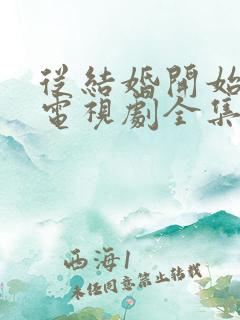 從結婚開始
電視劇全集
西海1
未经同意禁止转载